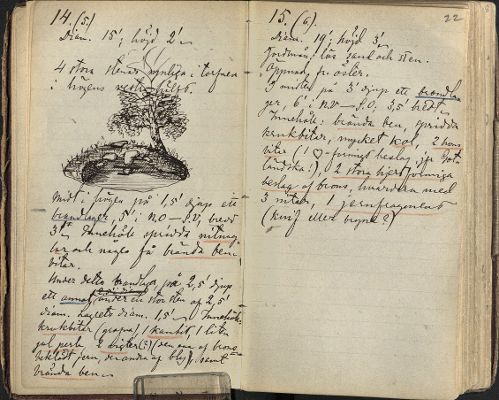 14. (5)
Diam. 15'; höjd 2'
4 stora stenar synliga i torfven
i högens
Midt i högen på 1,5' djup ett
brandlager, 5' i NO–SV, bredt
3'. Innehöll spridda
och några få brända ben-
bitar.
Under detta brandlager, på 2,5' djup
ett annat, under en stor sten af 2,5'
diam. Lagrets diam. 1,5'. Innehöll:
krukbitar, 1 1 liten
perla, 2 vigter(?) (den ena af brons
den andra af bly), samt
brända ben
15. (6).
22
Diam. 19'; höjd 3'
Jordmån: lös sand och sten.
Öppnad fr. öster.
I midten på 3' djup ett brandla-
ger, 6' i NV–SO, 3,5' bredt.
Innehöll: brända ben, spridda
krukbitar, mycket kol, 2 brons
bitar (1 ♡-formigt beslag, jfr Got-
ländska!), 2 stora hjertformiga
beslag af brons, hvardera med
3 nitar, 1 jernfragment
(knif eller bryne?)